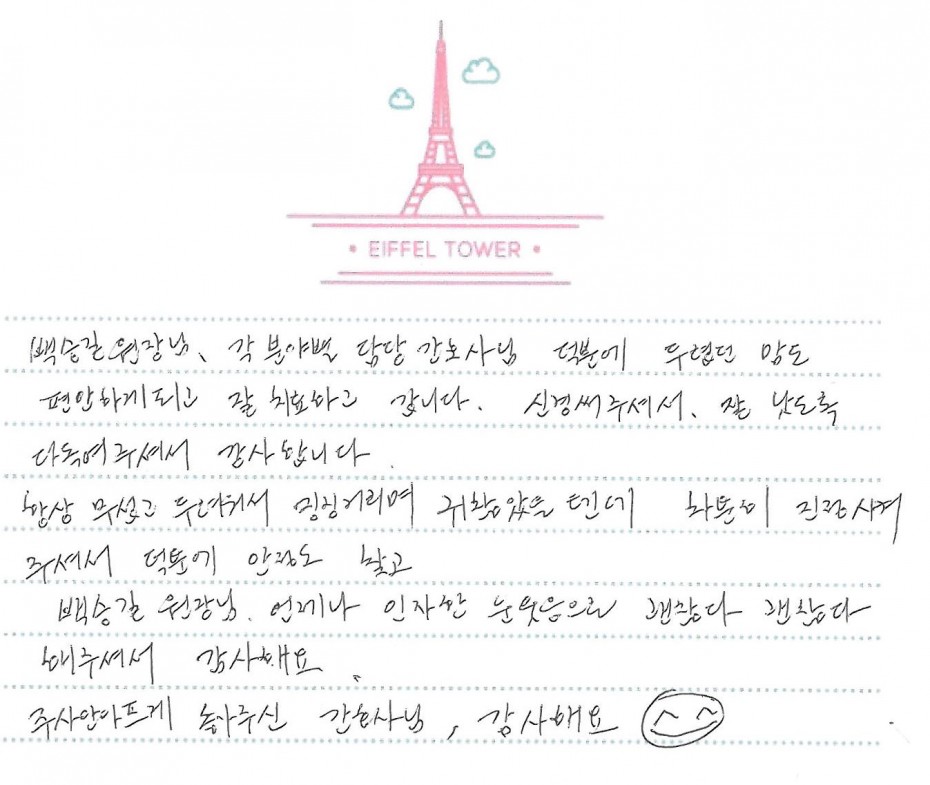 EIFFEL TOWER
백승길 원장님, 각 분야별 담당 간호사님 덕분에 두렵던 맘도
편안하게되고 잘 치료하고 갑니다. 신경써주셔서, 잘 낫도록
다독여주셔서 감사합니다.
항상 무섭고 두려워서 징징거리며 귀찮았을 텐데 차분히
주셔서 덕분에 안정도 찾고
백승길 원장님. 언제나 인자한 눈웃음으로 괜찮다 괜찮다
해주셔서 감사해요.
주사안아프게 놓아주신 간호사님, 감사해요